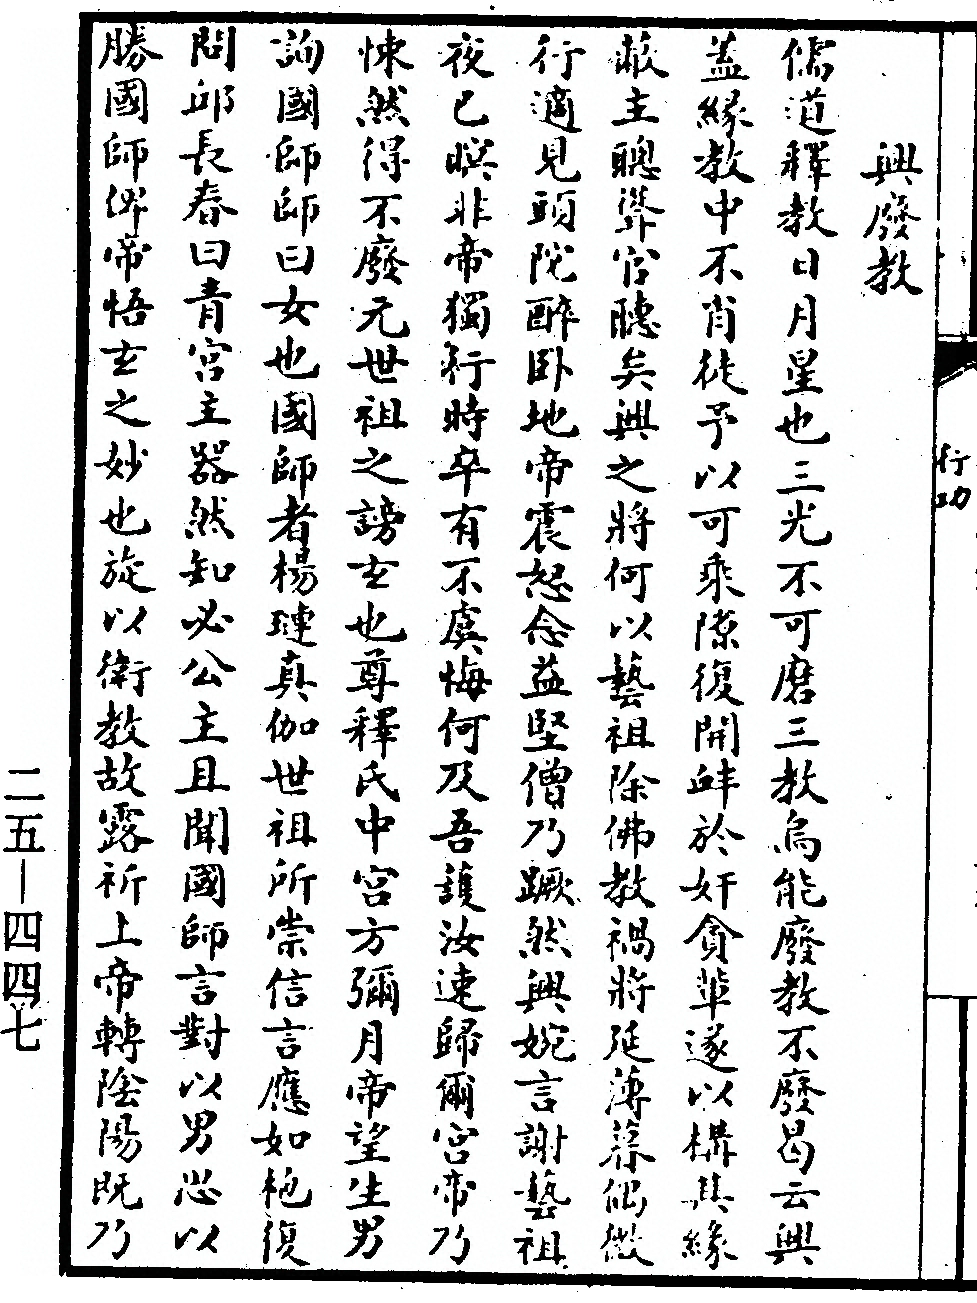 行功
興廢教
儒道釋教日月星也三光不可磨三教烏能廢教不廢曷云興
蓋緣教中不肖徒予以可乘隙復開衅於奸貪輩遂以構其緣
蔽主聰聳官聽矣興之將何以藝祖除佛教禍將延薄暮偶微
行適見頭陀醉卧地帝震怒念益堅僧乃蹶然興婉言謝藝祖
夜已暝非帝獨行時卒有不虞悔何及吾護汝速歸爾宮帝乃
悚然得不廢元世祖之謗玄也尊釋氏中宮方彌月帝望生男
詢國師師曰女也國師者楊璉真伽世祖所崇信言應如桴復
問邱長春曰青宮主器然知必公主且聞國師言對以男恐以
勝國師俾帝悟玄之妙也旋以衛教故露祈上帝轉陰陽既乃
二五—四四七